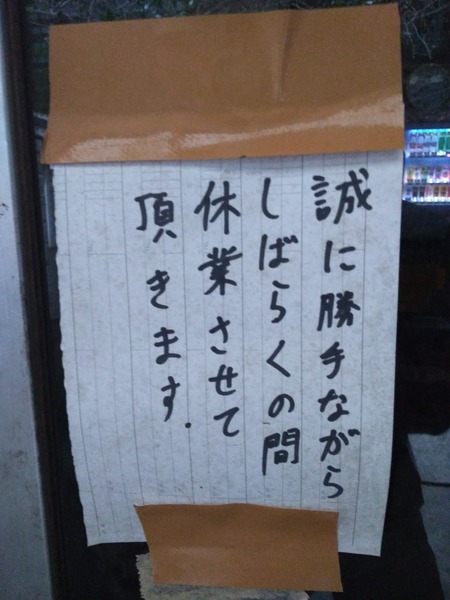 誠に勝手ながら
しばらくの間
休業させて
頂きます.